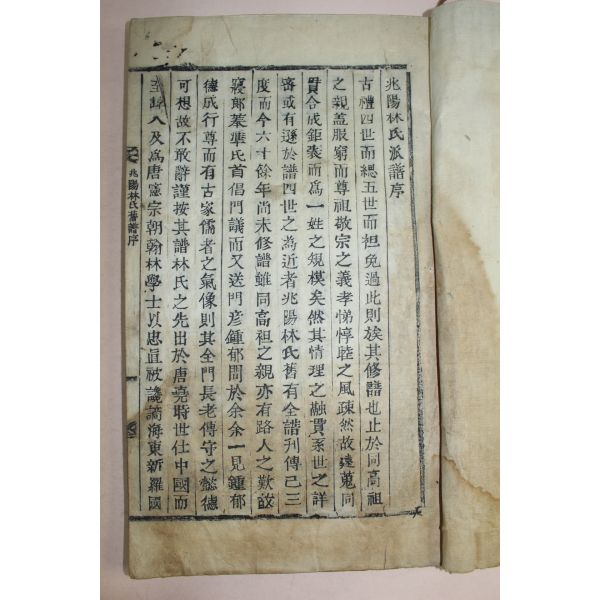 兆陽林氏派譜序
古禮四世而緦五世而袒免過此則族其修譜也止於同高祖
之親盖服窮而尊祖敬宗之義孝悌惇睦之風疎然故遠蒐同
貫合成鉅袠而爲一姓之規模矣然其情理之融貫系世之詳
審或有遜於譜四世之為近者兆陽林氏舊有全譜刊傳已三
度而今六十餘年尚未修譜雖同高祖之親亦有路人之歎故
寢郎棻準氏首倡門議而又送門彦鍾郁問於余余一見鍾郁
德成行尊而有古家儒者之氣像則其全門長老傳守之懿德
可想故不敢辭謹按其譜林氏之先出於唐堯時世仕中國而
至 八及為唐憲宗朝翰林學士以忠直被讒謫海東新羅國
兆陽林氏舊譜序